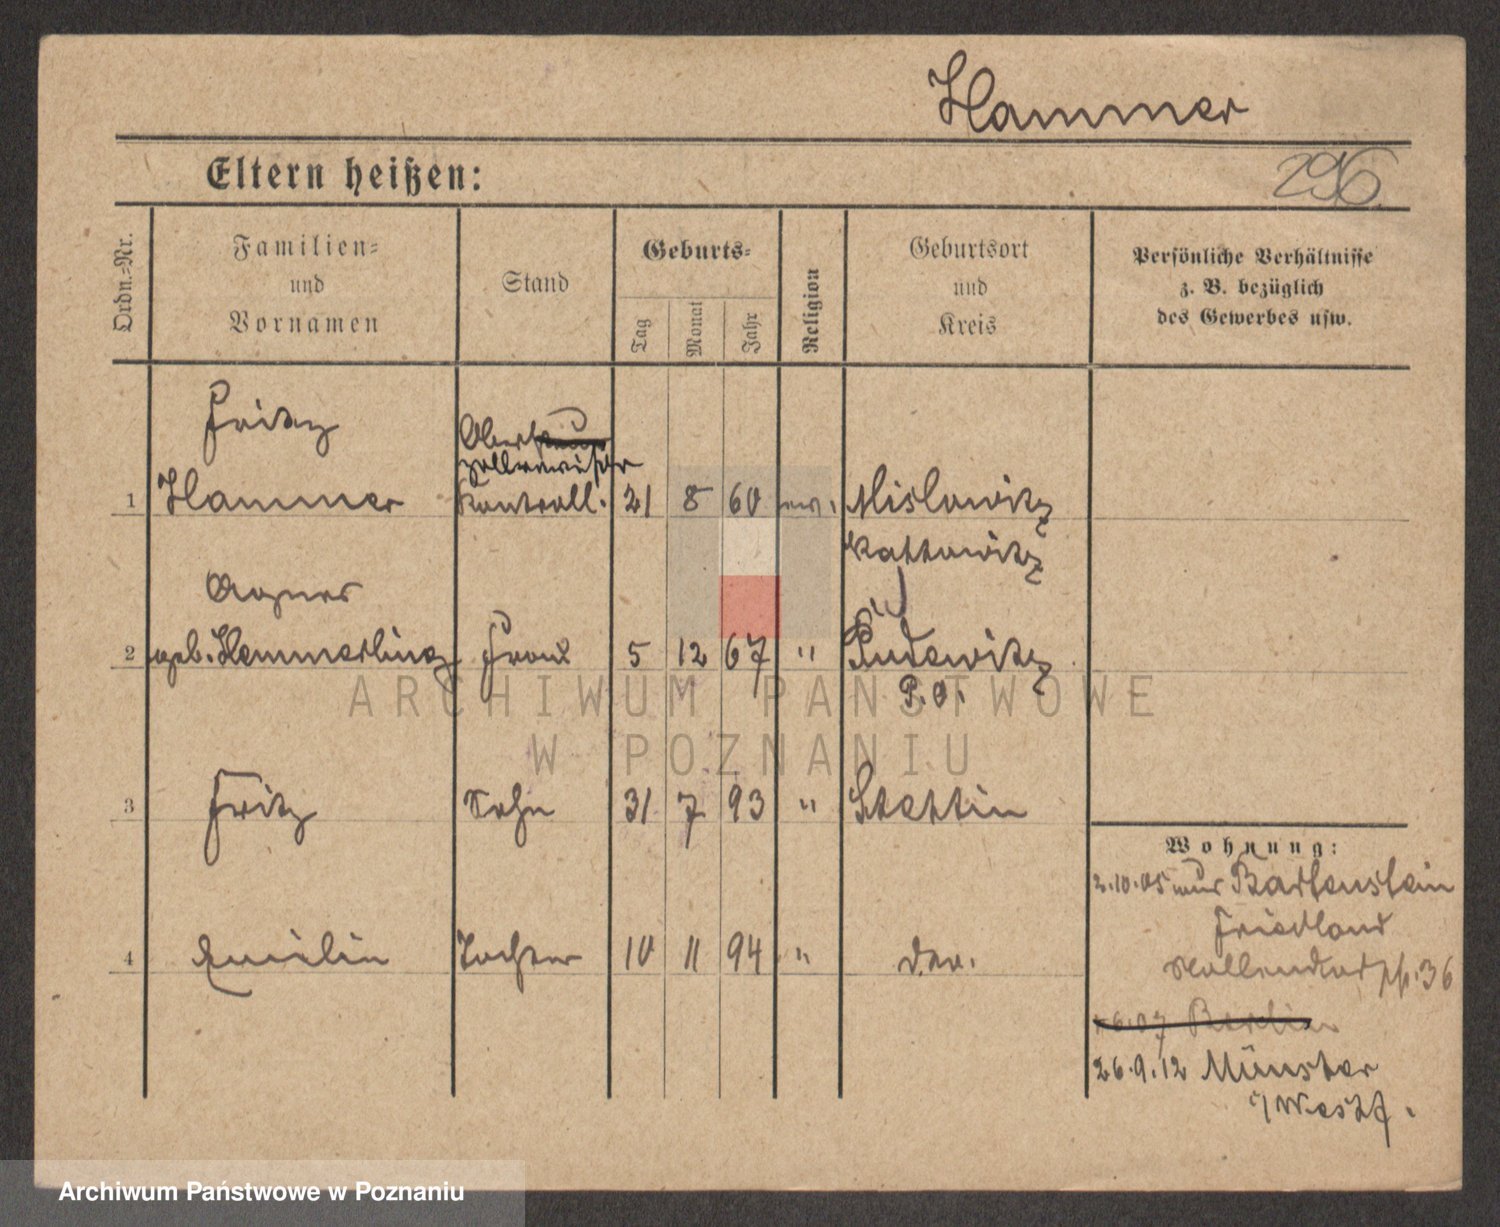 Hammer
Eltern heißen:
296
Ordn.-Nr.
Familien-
und
Vornamen
Stand
Geburts-
Tag
Monat
Jahr
Religion
Geburtsort
und
Kreis
Persönliche Verhältnisse
z. B. bezüglich
des Gewerbes usw.
Fritz
Ober
zollrevisor
1 Hammer Kontroll. 21 8 60 ev. Mislowitz
Kattowitz
Agnes
2 geb. Hemmerling Frau 5 12 67 " Pudewitz
P.O.
3 Fritz Sohn 31 7 93 " Stettin
Wohnung:
2.10.05 nur Bartenstein
Friedland
4 Emilie Tochter 10 11 94 " das.
36
6.07 Berlin
26.9.12 Münster
i/Westf.
ARCHIWUM PAŃSTWOWE
W POZNANIU
Archiwum Państwowe w Poznaniu